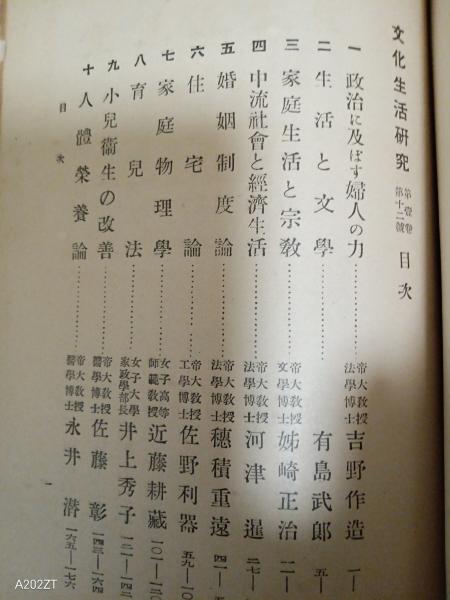 文化生活研究 第壹卷第十二號 目次
一 政治に及ぼす婦人の力………帝大敎授法學博士 吉野作造 一—
二 生活と文學………有島武郎 五—
三 家庭生活と宗敎………帝大敎授文學博士 姊崎正治 一一—
四 中流社會と經濟生活………帝大敎授法學博士 河津暹 二七—
五 婚姻制度論………帝大敎授法學博士 穗積重遠 四一—五
六 住宅論………帝大敎授工學博士 佐野利器 五九—一〇
七 家庭物理學………女子高等師範敎授 近藤耕藏 一〇一—一二〇
八 育兒法………女子大學家政學部長 井上秀子 一二一—一四二
九 小兒衞生の改善………帝大敎授醫學博士 佐藤彰 一四三—一六四
十 人體榮養論………帝大敎授醫學博士 永井潛 一六五—一七六
目次
一
A202ZT